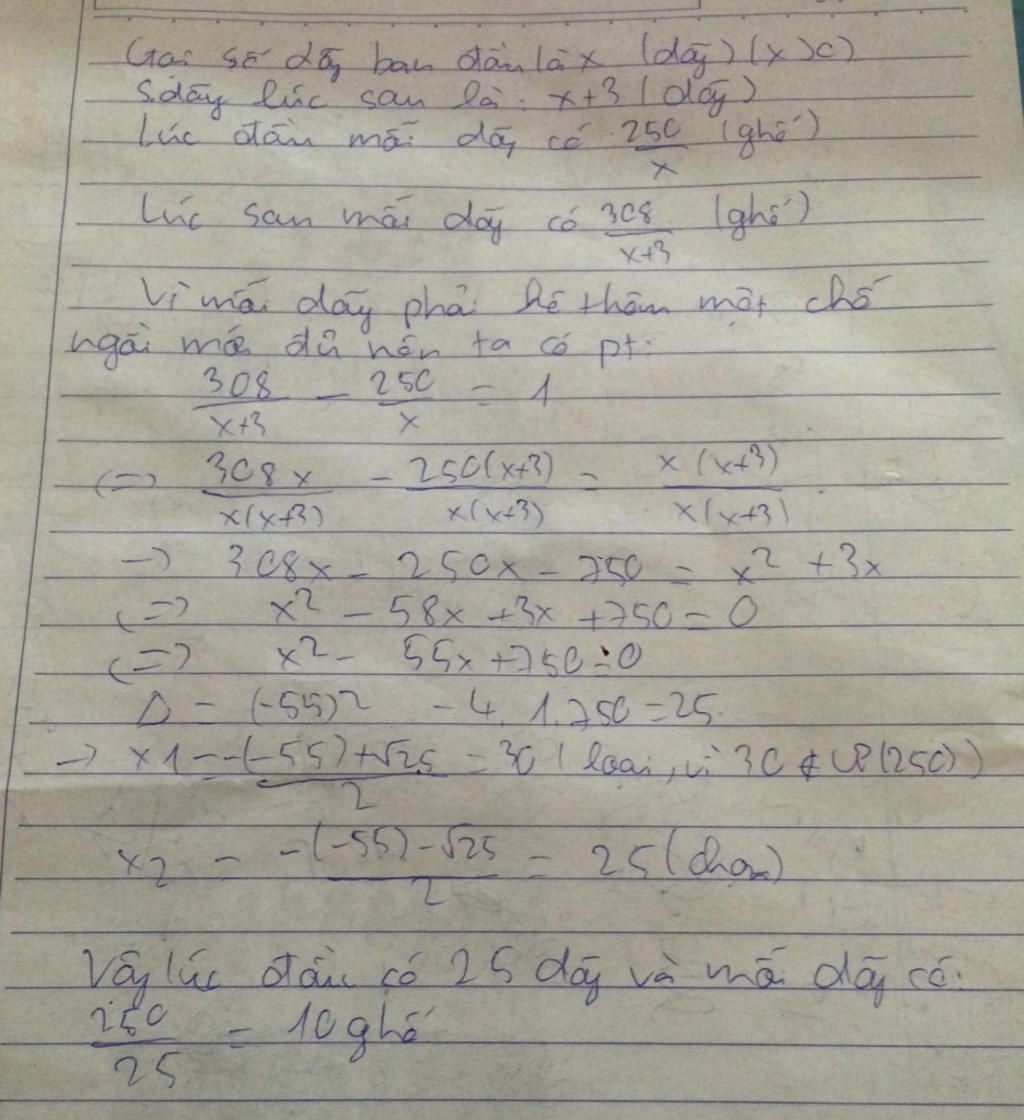 Gọi số dãy ban đầu là x (dãy) (x>0)
S.dãy lúc sau là: x+3 (dãy)
Lúc đầu mỗi dãy có 250/x (ghế)
Lúc sau mỗi dãy có 308/x+3 (ghế)
Vì mỗi dãy phải kê thêm một chỗ
ngồi mới đủ nên ta có pt:
308/x+3 - 250/x = 1
<=> 308x/x(x+3) - 250(x+3)/x(x+3) = x(x+3)/x(x+3)
-> 308x - 250x - 750 = x² + 3x
<=> x² - 58x + 3x + 750 = 0
<=> x² - 55x + 750 = 0
Δ = (-55)² - 4.1.750 = 25.
-> x1 = -(-55)+√25/2 = 30 (loại, vì 30 ∉ Ư(250))
x2 = -(-55)-√25/2 = 25 (chọn)
Vậy lúc đầu có 25 dãy và mỗi dãy có:
250/25 = 10 ghế